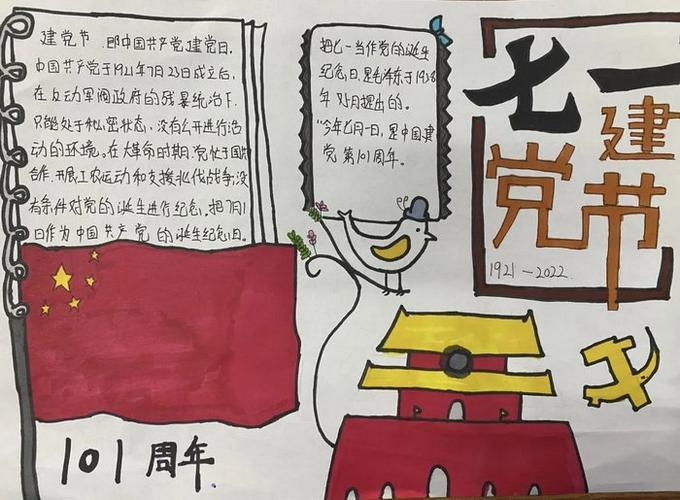 建党节 即中国共产党建党日.
中国共产党于1921年7月23日成立后,
在反动军阀政府的残暴统治下.
只能处于秘密状态、没有公开进行活
动的环境。在大革命时期.党忙于国共
合作.开展工农运动和支援北伐战争,没
有条件对党的诞生进行纪念.把7月1
日作为中国共产党的诞生纪念日.
101周年.
把七一当作党的诞生
纪念日,是毛泽东于1938
年5月提出的。
"今年七月一日,是中国建
党第101周年。
七一
建
党节
1921—2022.